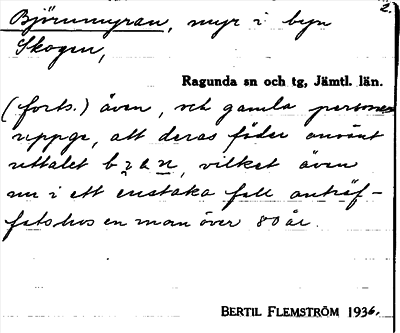 2.
Björnmyran, myr i byn
Skogen,
Ragunda sn och tg, Jämtl. län.
(forts.) även, och gamla personer
uppge, att deras föder använt
uttalet, vilket även
nu i ett enstaka fall anträf-
fats hos en man över 80 år.
BERTIL FLEMSTRÖM 1936.